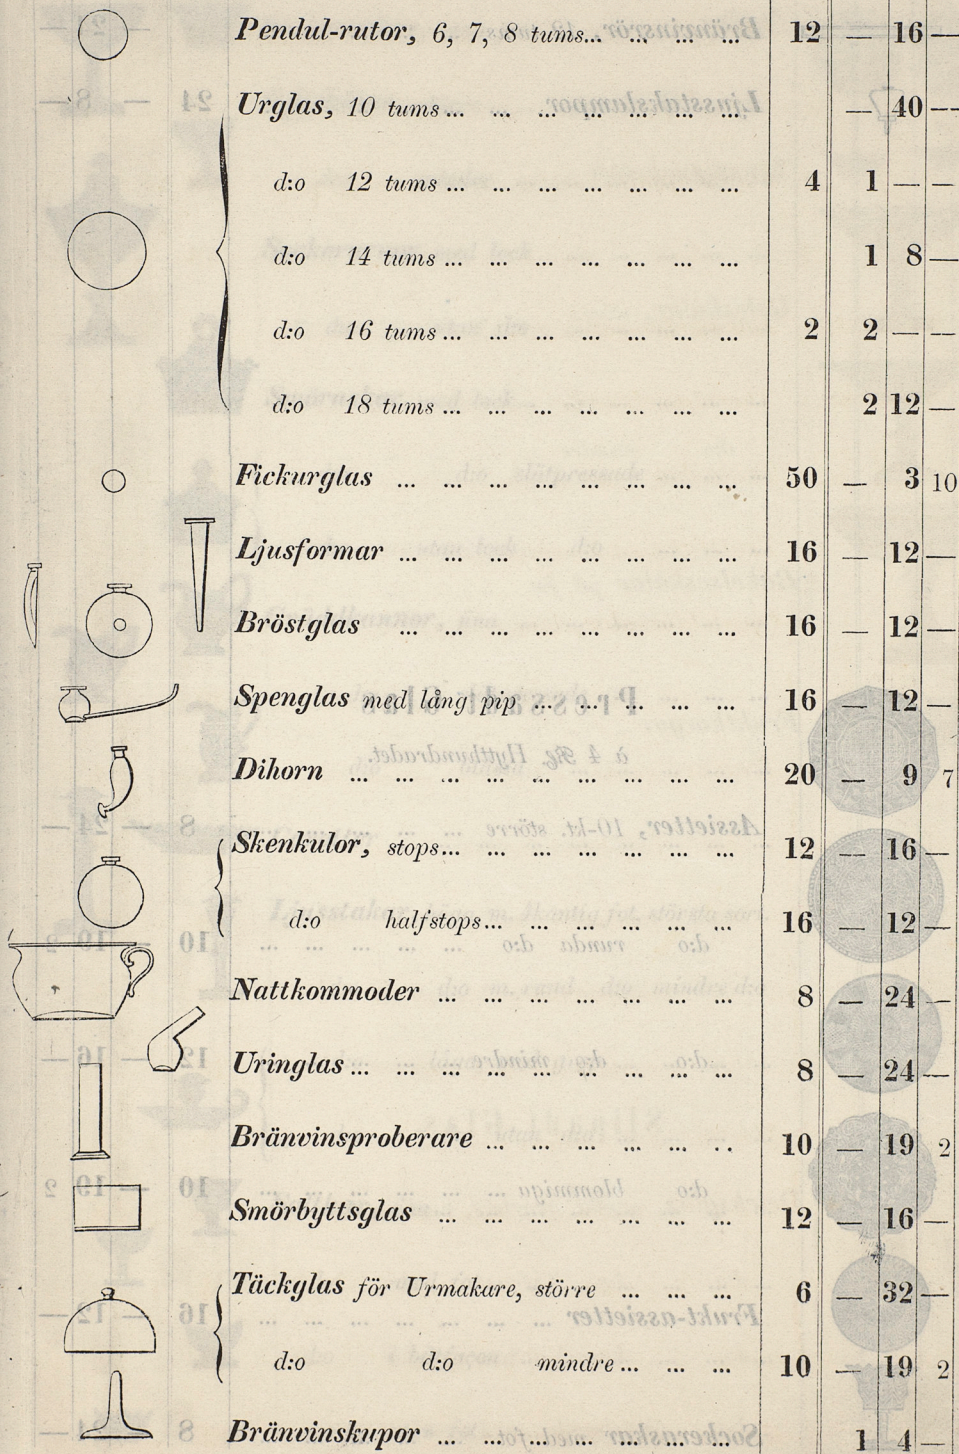 Pendul-rutor, 6, 7, 8 tums... ... ... ... 12 — 16 —
Urglas, 10 tums ... ... ... ... ... ... ... — 40 —
d:o 12 tums ... ... ... ... ... ... ... 4 1 — —
d:o 14 tums ... ... ... ... ... ... ... 1 8 —
d:o 16 tums ... ... ... ... ... ... ... 2 2 — —
d:o 18 tums ... ... ... ... ... ... ... 2 12 —
Fickurglas ... ... ... ... ... ... ... ... 50 — 3 10
Ljusformar ... ... ... ... ... ... ... ... 16 — 12 —
Bröstglas ... ... ... ... ... ... ... ... 16 — 12 —
Spenglas med lång pip ... ... ... ... ... 16 — 12 —
Dihorn ... ... ... ... ... ... ... ... ... 20 — 9 7
Skenkulor, stops... ... ... ... ... ... ... 12 — 16 —
d:o halfstops... ... ... ... ... ... 16 — 12 —
Nattkommoder ... ... ... ... ... ... ... 8 — 24 —
Uringlas ... ... ... ... ... ... ... ... ... 8 — 24 —
Bränvinsproberare ... ... ... ... ... ... 10 — 19 2
Smörbyttsglas ... ... ... ... ... ... ... 12 — 16 —
Täckglas för Urmakare, större ... ... ... 6 — 32 —
d:o d:o mindre ... ... ... 10 — 19 2
Bränvinskupor ... ... ... ... ... ... ... 1 4 —